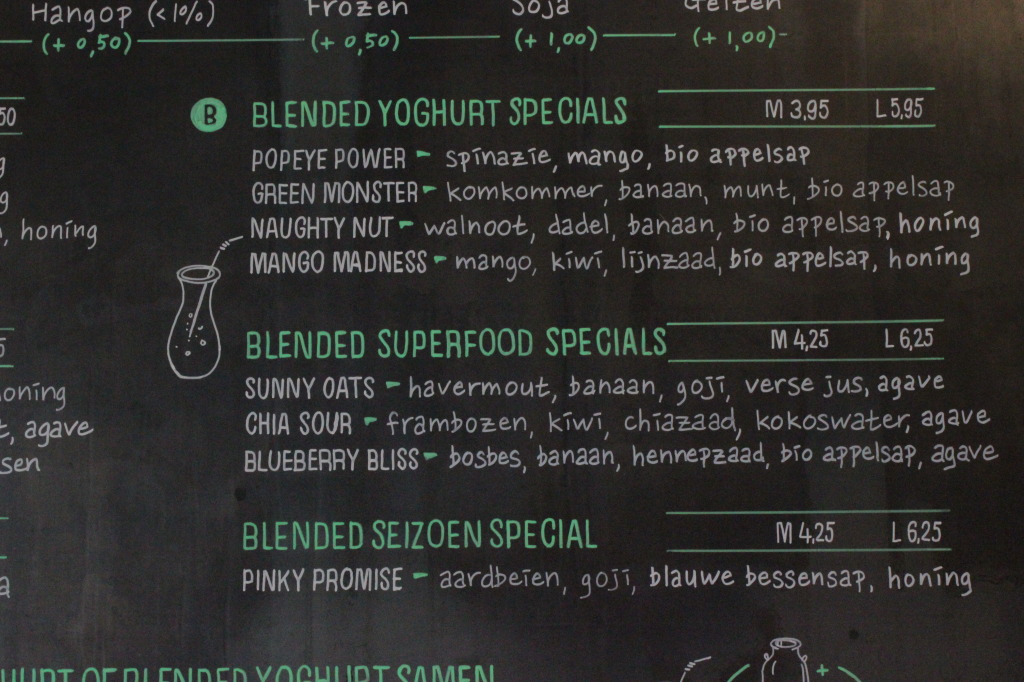 Hangop (<10%) Frozen Soja Geiten
(+ 0,50) (+ 0,50) (+ 1,00) (+ 1,00)
50
B BLENDED YOGHURT SPECIALS M 3,95 L 5,95
POPEYE POWER - spinazie, mango, bio appelsap
GREEN MONSTER - komkommer, banaan, munt, bio appelsap
, honing
NAUGHTY NUT - walnoot, dadel, banaan, bio appelsap, honing
MANGO MADNESS - mango, kiwi, lijnzaad, bio appelsap, honing
5
BLENDED SUPERFOOD SPECIALS M 4,25 L 6,25
oning
SUNNY OATS - havermout, banaan, goji, verse jus, agave
t, agave
CHIA SOUR - frambozen, kiwi, chiazaad, kokoswater, agave
sen
BLUEBERRY BLISS - bosbes, banaan, hennepzaad, bio appelsap, agave
BLENDED SEIZOEN SPECIAL M 4,25 L 6,25
a
PINKY PROMISE - aardbeien, goji, blauwe bessensap, honing
HURT OF BLENDED YOGHURT SAMEN
+